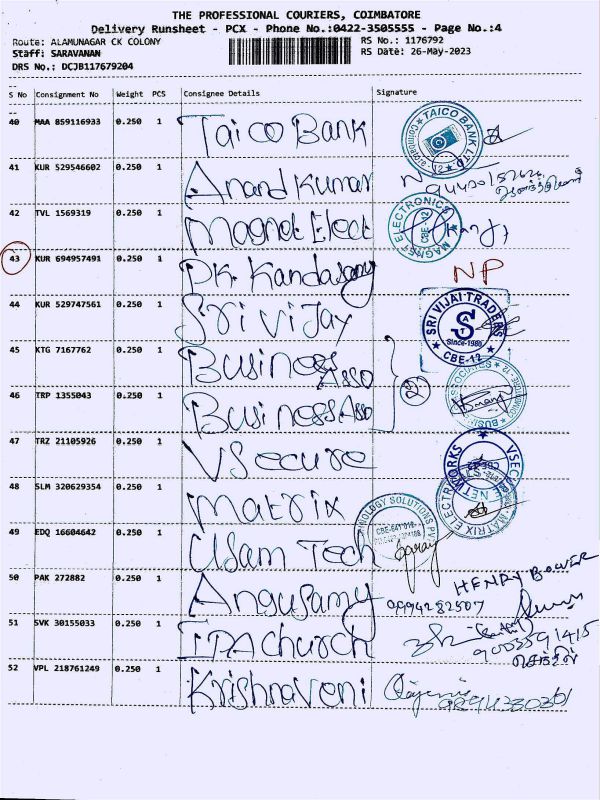 THE PROFESSIONAL COURIERS, COIMBATORE
Delivery Runsheet - PCX - Phone No.:0422-3505555 - Page No.:4
Route: ALAMUNAGAR CK COLONY RS No.: 1176792
Staff: SARAVANAN RS Date: 26-May-2023
DRS No.: DCJB117679204
S No Consignment No Weight PCS Consignee Details Signature
40 MAA 859116933 0.250 1 Taico Bank TAICO BANK LTD
41 KUR 529546602 0.250 1 Anand Kumar
42 TVL 1569319 0.250 1 Magnet Elect MAGNET ELECTRONICS CBE-12
43 KUR 694957491 0.250 1 P.K. Kandasamy NP
44 KUR 529747561 0.250 1 Sri Vijay SRI VIJAI TRADERS SAT Since-1986 CBE-12
45 KTG 7167762 0.250 1 Business Asso
46 TRP 1355043 0.250 1 Business Asso 2
47 TRZ 21105926 0.250 1 V Secure
48 SLM 320629354 0.250 1 Matrix MATRIX ELECTRWORKS
49 EDQ 16604642 0.250 1 Usam Tech
50 PAK 272882 0.250 1 Angusamy 9994282507 HENRY BOWER
51 SVK 30155033 0.250 1 IPA Church 9003591415
52 VPL 218761249 0.250 1 Krishnaveni